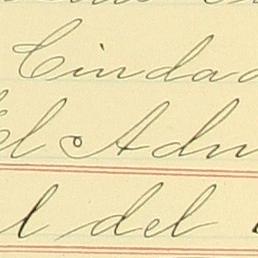 Ciudad
El Adm
l del